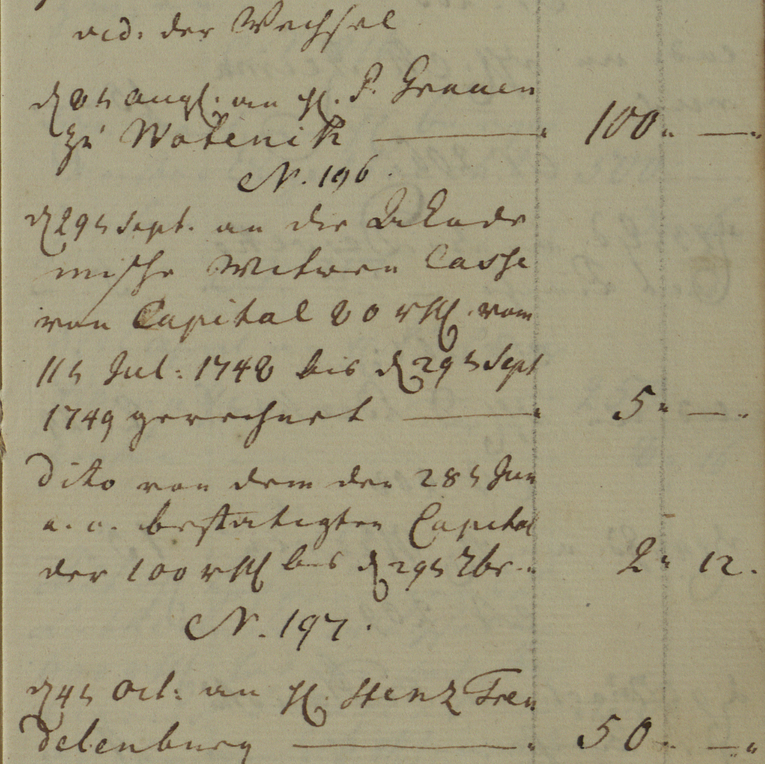 vid. der Wechsel
d 8t Augt. an H. P. Grauen
zu Wotenik — 100 " — "
N. 196.
d 29t Sept. an die Acade
mische Witwen Casse
von Capital 80 rthl. vom
11t Jul: 1748 bis d 29t Sept
1749 gerechnet — 5 " — "
Dito von dem den 28t Jun
a. c. bestätigten Capital
der 100 rthl bis d 29t 7br. 2 " 12.
N. 197.
d 4t Oct: an H. Stenz Tren
delenburg — 50 " — "